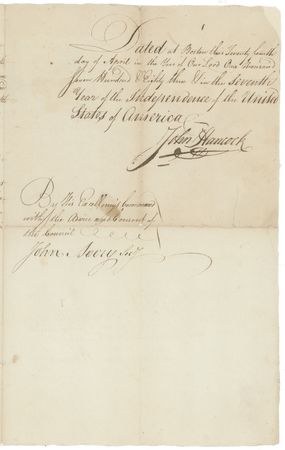 Dated at Boston this Twenty fourth
day of April in the Year of Our Lord One Thousand
Seven Hundred & Eighty three & in the Seventh
Year of the Independence of the United
States of America
John Hancock
By His Excellency's Command
with the Advice and Consent of
the Council
John Avery Secy